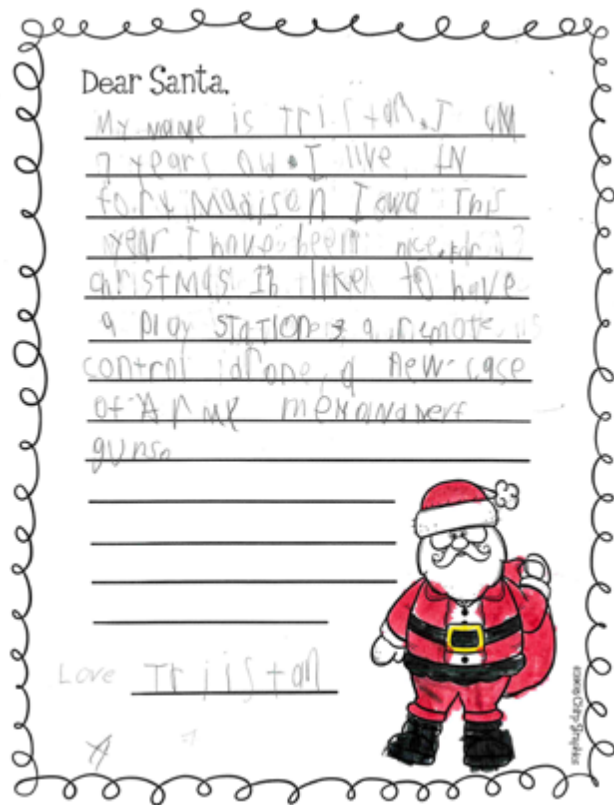 Dear Santa,
My name is Triistan. I am
7 years old. I live in
fort Madison Iowa This
year I have been nice. for
christmas Id like to have
a play station 3 a remote
control drone, a new case
of Army men and nerf
guns.
Love Triistan